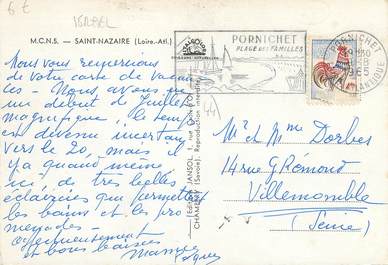 6€
ISRAEL
M.C.N.S. – SAINT-NAZAIRE (Loire-Atl.)
Nous vous remercions
de votre carte de vacan
ces – Nous avons eu
un début de Juillet
magnifique, le temps
est devenu incertain
vers le 20, mais il
y a quand même
ici, de très belles
éclaircies qui permettent
les bains et les pro
menades –
Affectueusement
et bons baisers
PORNICHET
PLAGE DES FAMILLES
PORNICHET
1965
ATLANTIQUE
44
JANSOL
CHAMBÉRY (Savoie). Reproduction interdite
Mr et Mme Dorbes
14 rue G Rémond
Villemomble
(Seine)